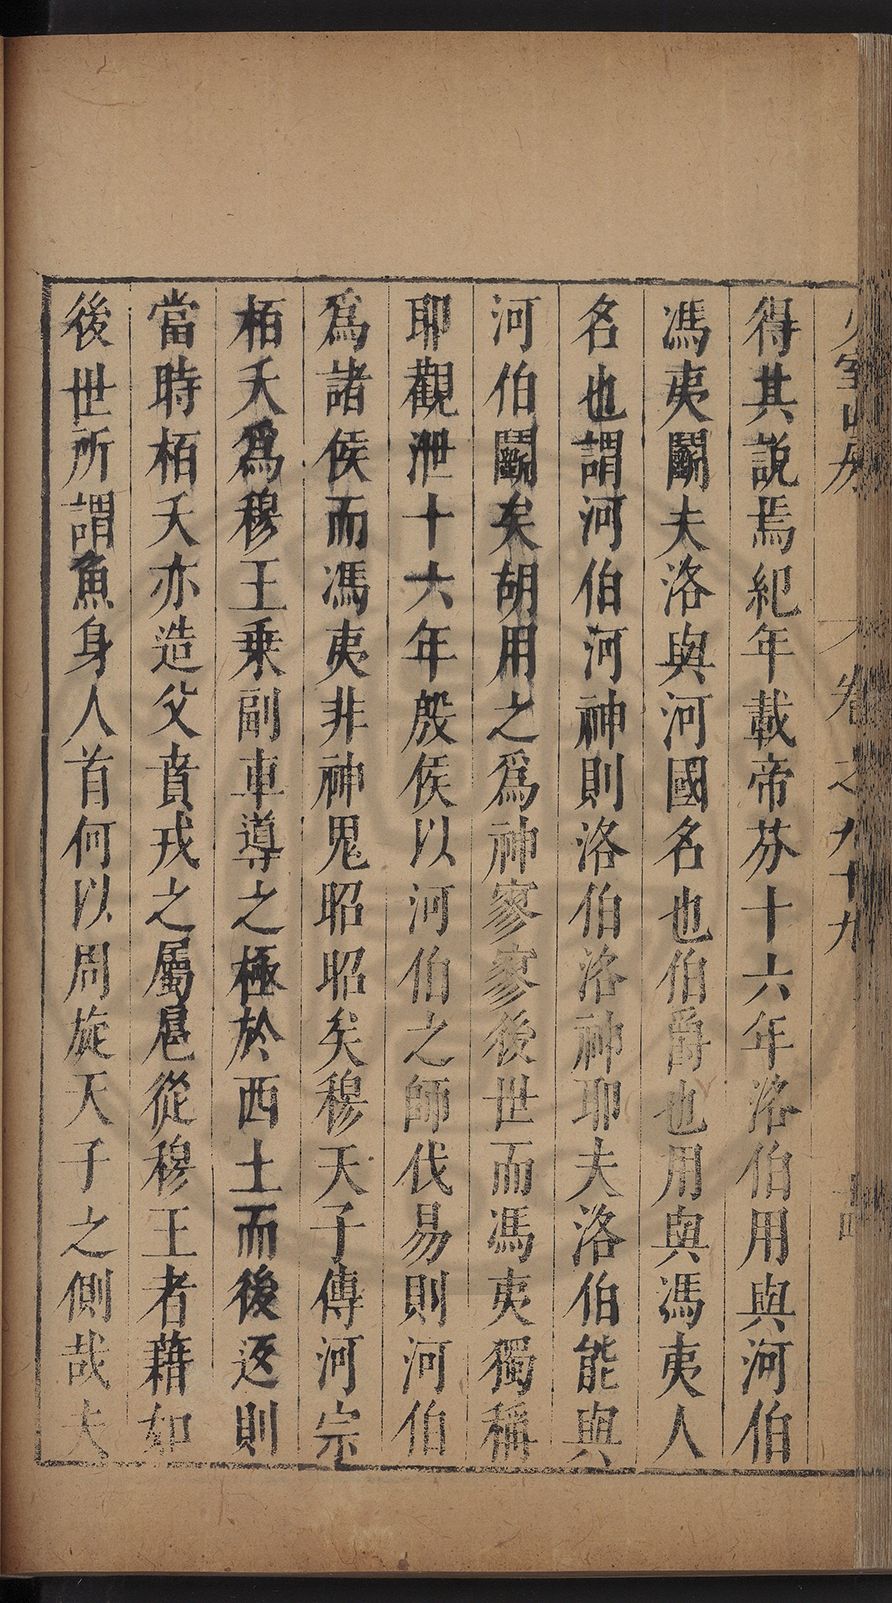 少室山房
卷之九十九
十四
得其說焉紀年載帝芬十六年洛伯用與河伯
馮夷鬭夫洛與河國名也伯爵也用與馮夷人
名也謂河伯河神則洛伯洛神耶夫洛伯能與
河伯鬭矣胡用之為神寥寥後世而馮夷獨稱
耶觀泄十六年殷侯以河伯之師伐易則河伯
爲諸侯而馮夷非神鬼昭昭矣穆天子傳河宗
栢夭爲穆王乗副車導之極於西土而後返則
當時栢夭亦造父賁戎之屬扈從穆王者藉如
後世所謂魚身人首何以周旋天子之側哉夫